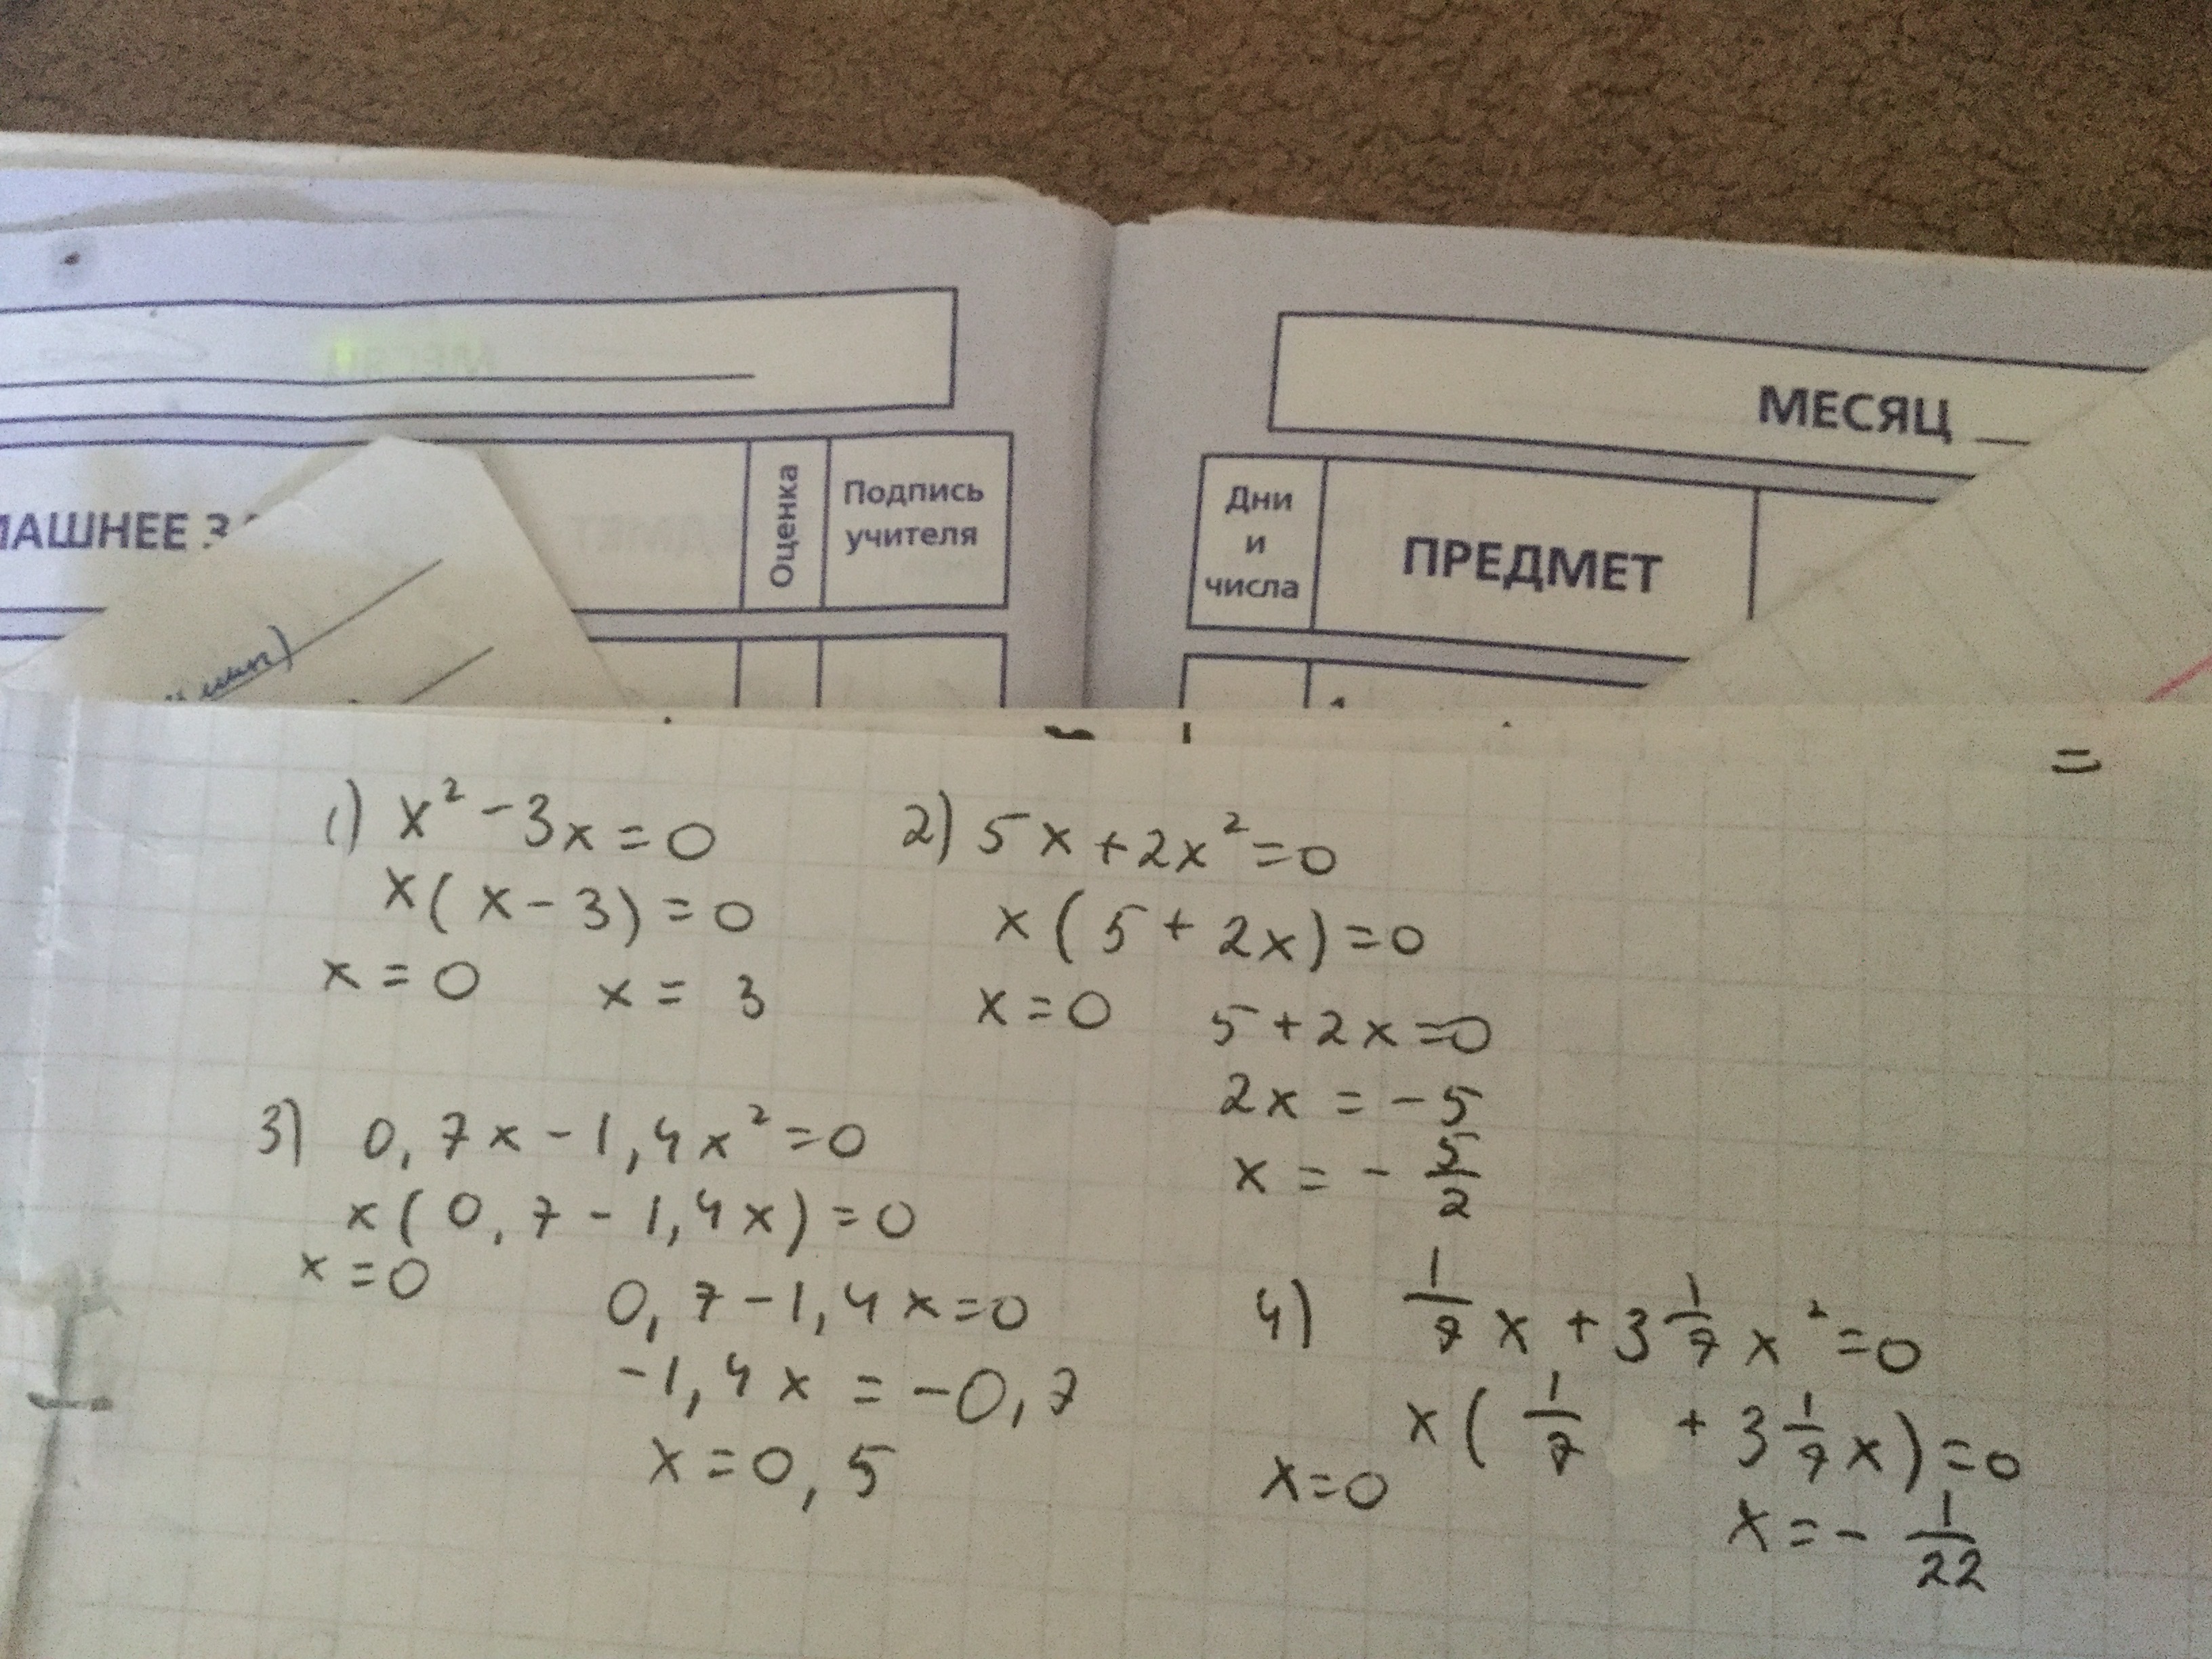 МЕСЯЦ
Оценка
Подпись
учителя
Дни
и
числа
ПРЕДМЕТ
1) x² - 3x = 0
x(x - 3) = 0
x = 0 x = 3
2) 5x + 2x² = 0
x(5 + 2x) = 0
x = 0 5 + 2x = 0
2x = -5
x = - 5/2
3) 0,7x - 1,4x² = 0
x(0,7 - 1,4x) = 0
x = 0
0,7 - 1,4x = 0
-1,4x = -0,7
x = 0,5
4) 1/7 x + 3 1/7 x² = 0
x(1/7 + 3 1/7 x) = 0
x = 0
x = - 1/22
=